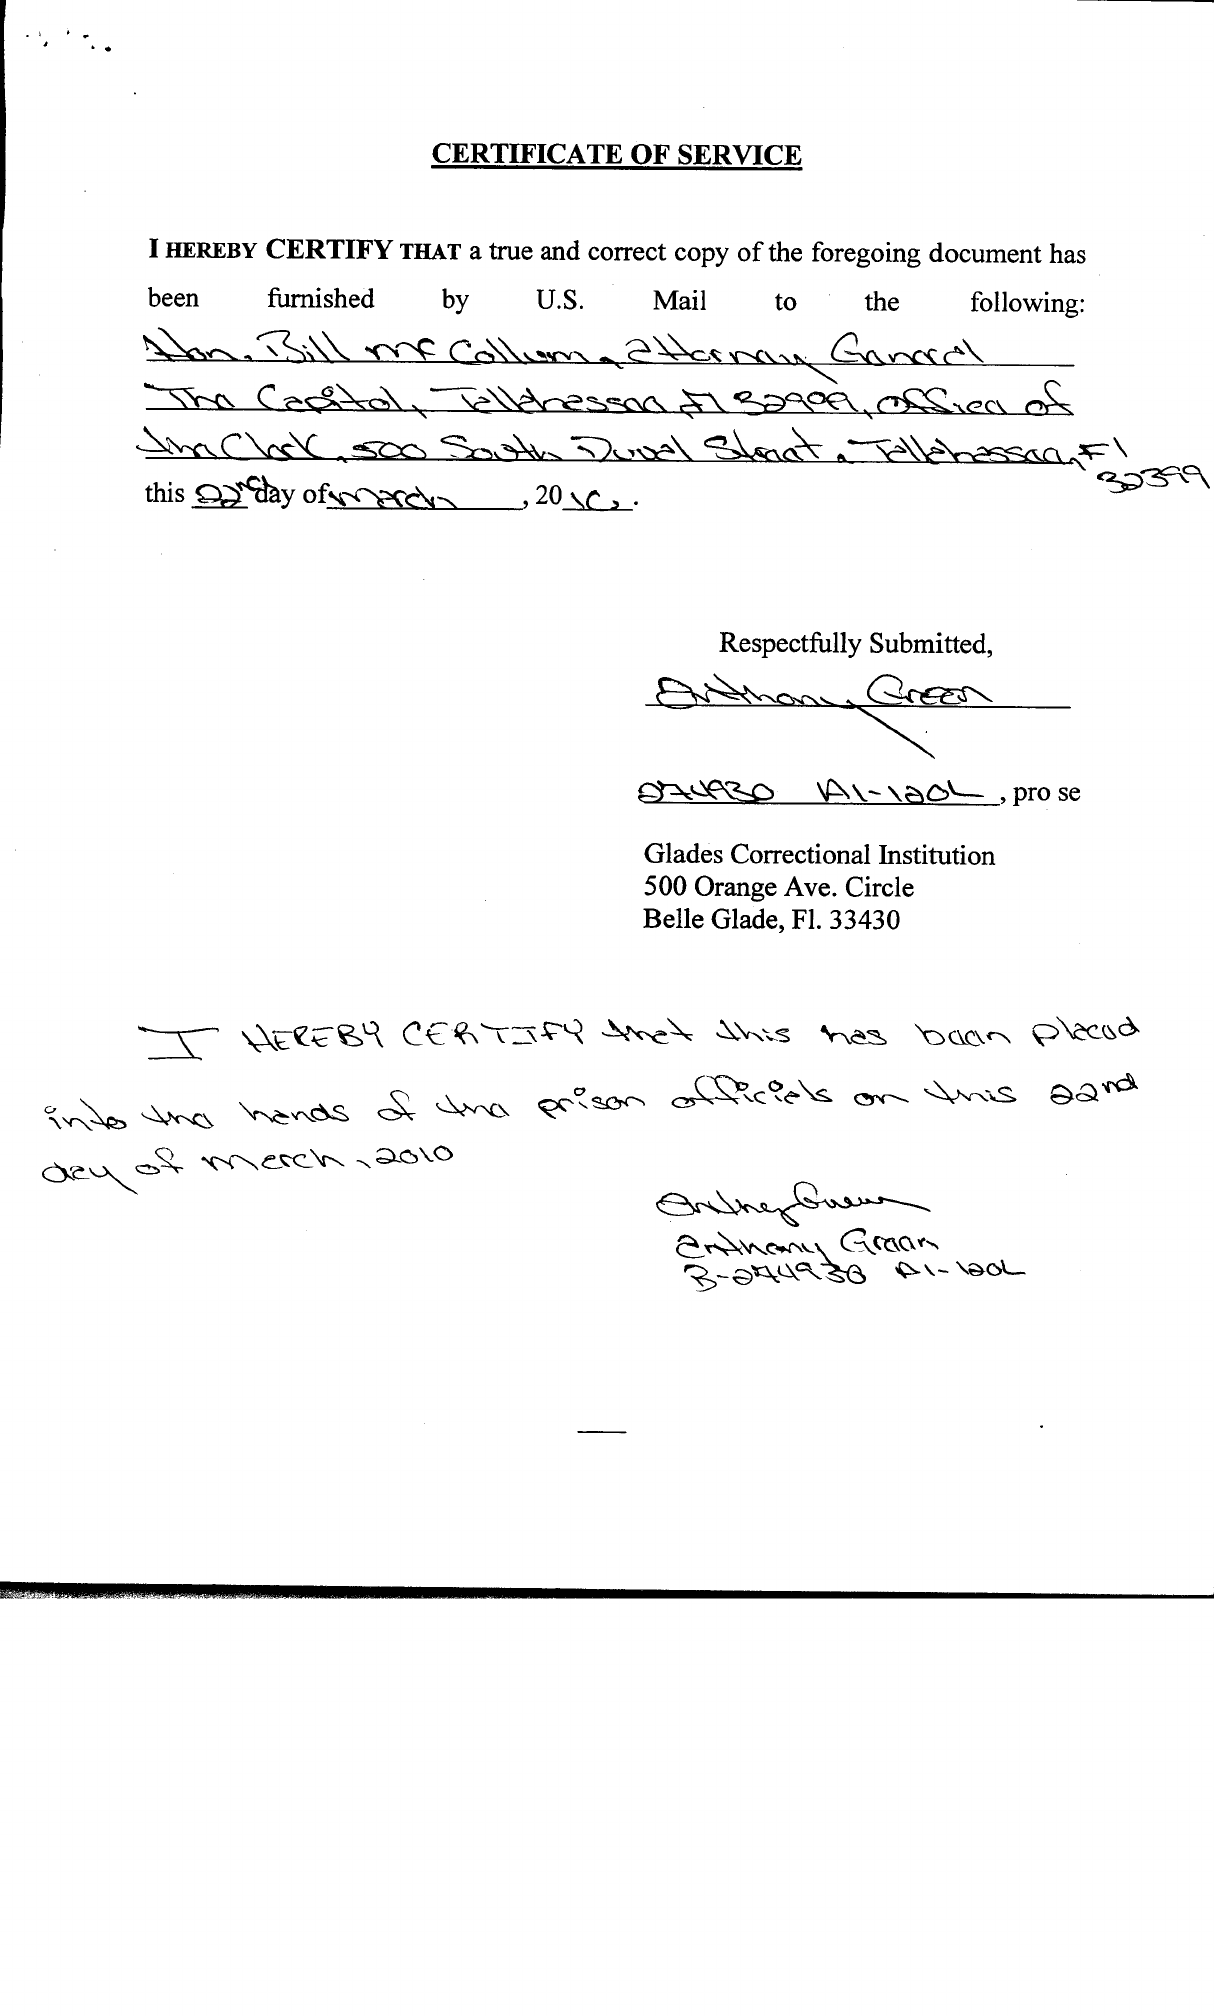 CERTIFICATE OF SERVICE
I HEREBY CERTIFY THAT a true and correct copy of the foregoing document has
been furnished by U.S. Mail to the following:
Hon. Bill McCollum, Attorney General
The Capitol, Tallahassee, Fl 32999, office of
the Clerk, 500 South Duval Street, Tallahassee, Fl
32399
this 22nd day of March, 2010.
Respectfully Submitted,
Anthony Green
274930 A1-120L, pro se
Glades Correctional Institution
500 Orange Ave. Circle
Belle Glade, Fl. 33430
I HEREBY CERTIFY that this has been placed
into the hands of the prison officials on this 22nd
day of March, 2010
Anthony Green
Anthony Green
B-274930 A1-120L